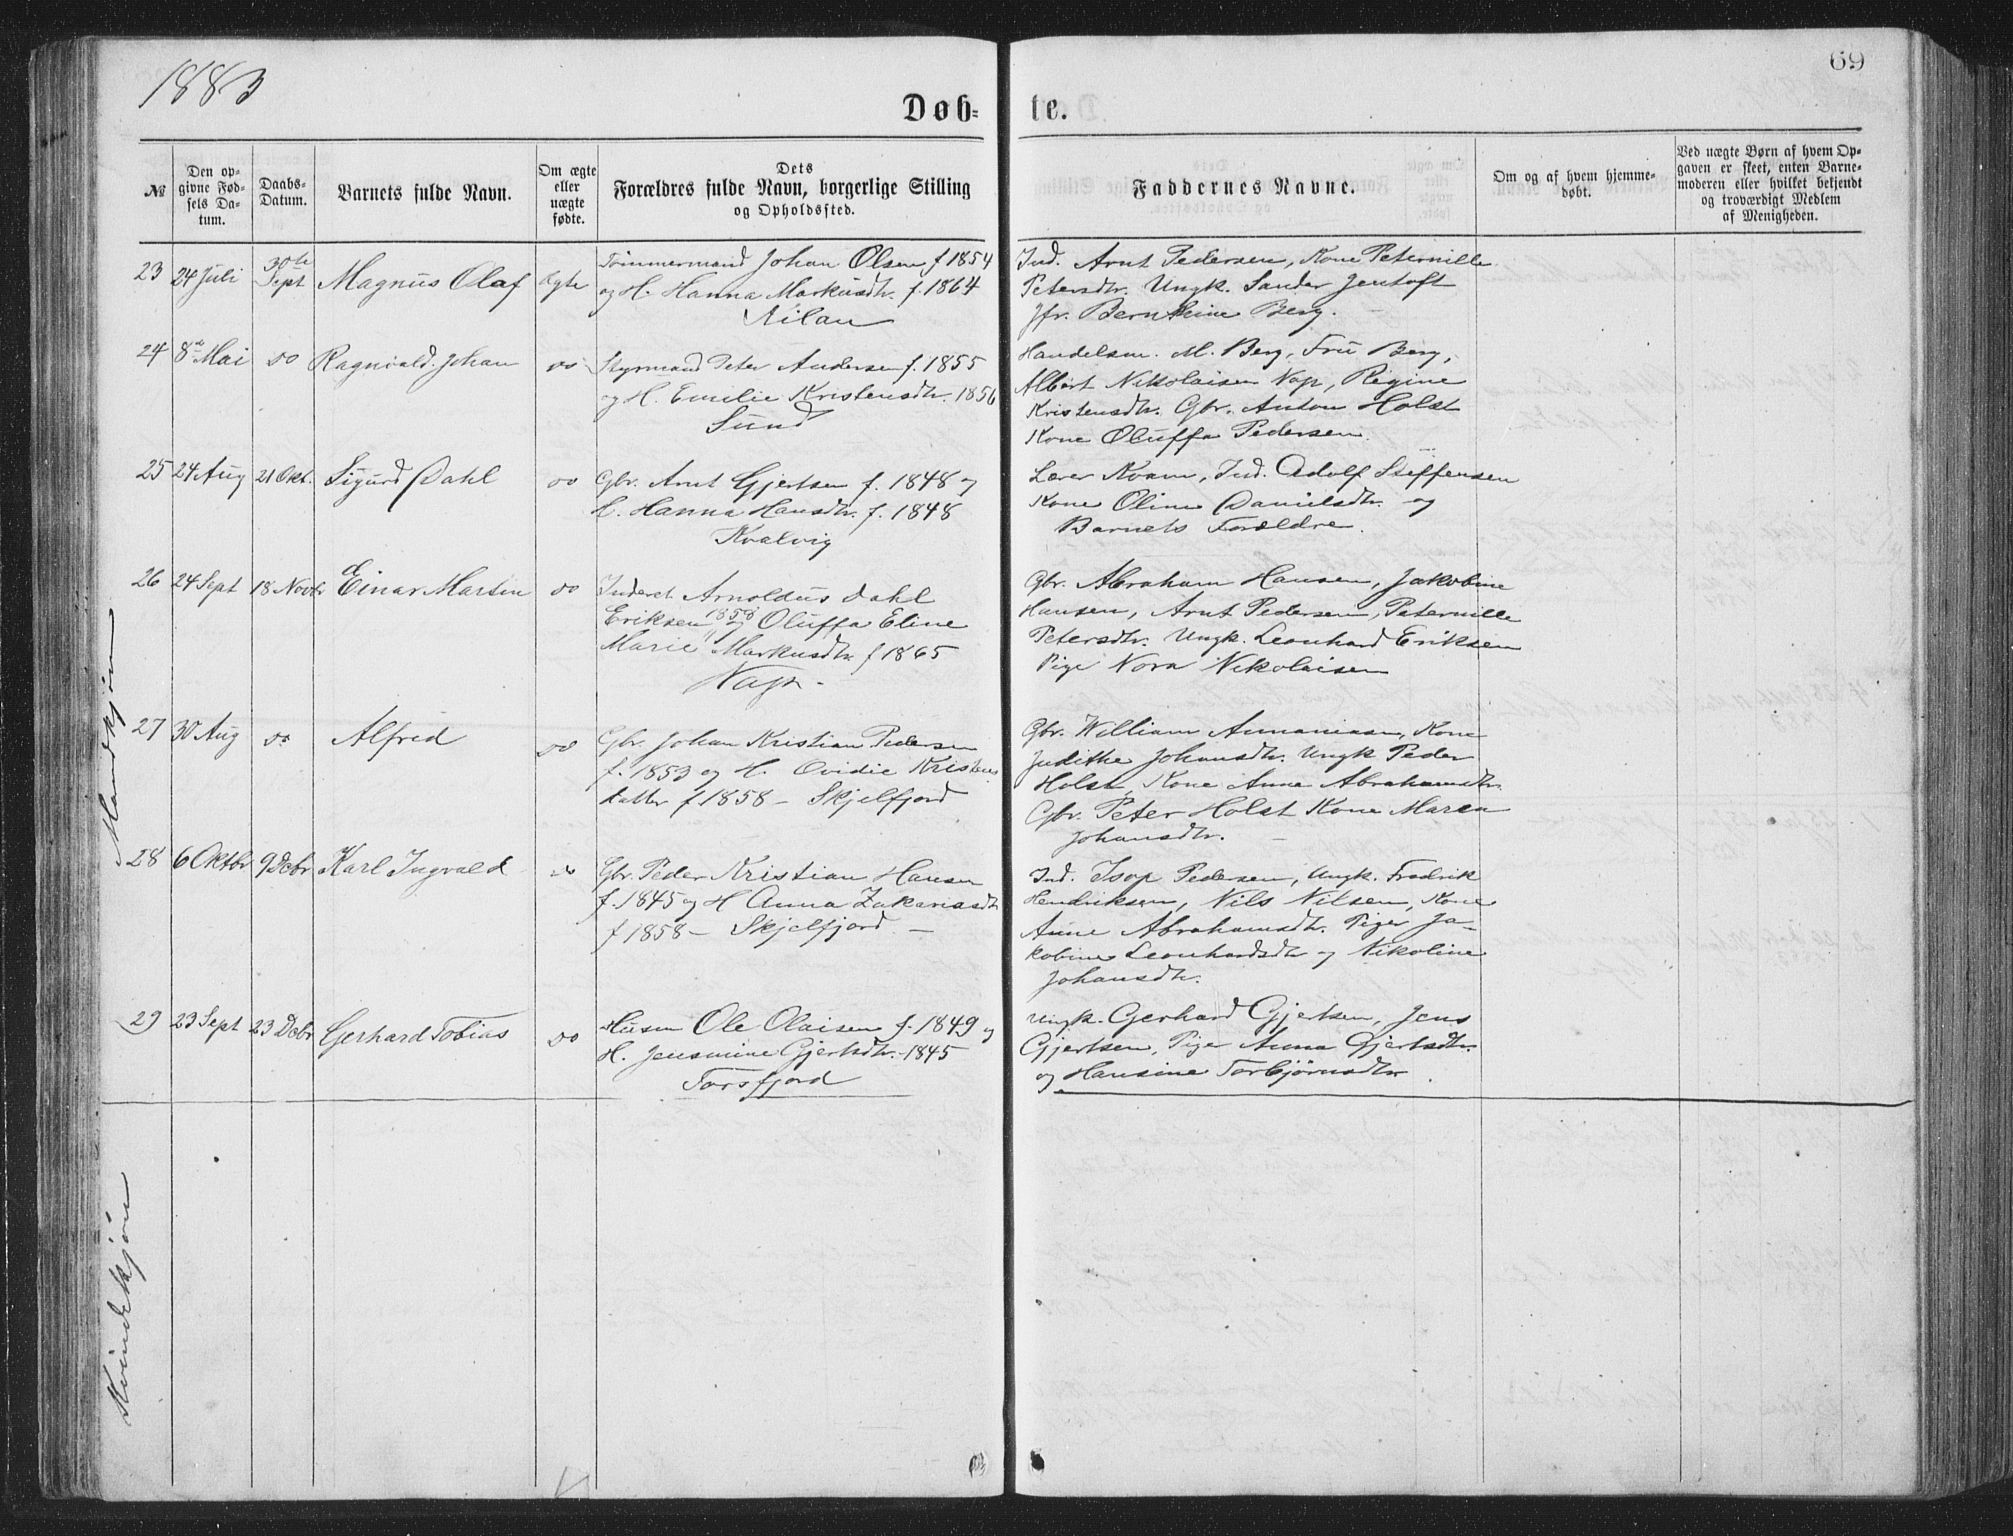 1883
69
Døb-
te.
№
Den op-
givne Fød-
sels Da-
tum.
Daabs-
Datum.
Barnets fulde Navn.
Om ægte
eller
uægte
fødte.
Dets
Forældres fulde Navn, borgerlige Stilling
og Opholdssted.
Faddernes Navne.
Om og af hvem hjemme-
døbt.
Ved uægte Børn af hvem Op-
gaven er skeet, enten Barne-
moderen eller hvilket bekjendt
og troværdigt Medlem
af Menigheden.
Mandkjøn
23 24 Juli 30te Sept Magnus Olaf ægte
Tømmermand Johan Olsen f 1854
og H. Hanna Markusdtr. f. 1864
Ind. Arnt Pedersen, Kone Peternille
Petersdtr. Ungk. Sander Jentoft
Jfr. Berntine Berg.
24 8de Mai do Ragnvald Johan do
Styrmand Peter Andersen f. 1855
og H. Emilie Kristensdtr. 1856
Sund
Handelsm. M. Berg, Fru Berg,
Albert Nikolaisen Nap, Regine
Kristensdtr. Gbr. Anton Holst
Kone Oluffa Pedersen.
25 24 Aug 21 Okt. Sigurd Dahl do
Gbr. Arnt Gjertsen f. 1848 og
H. Hanna Hansdtr. f. 1848
Kvalvig
Lærer Kvam, Ind. Adolf Steffensen
Kone Oline Danielsdtr. og
Barnets Forældre.
26 24 Sept 18 Novbr Einar Martin do
Inderst Arnoldus Dahl
Eriksen 1858 og Oluffa Eline
Marie Markusdtr f 1865
Nap.
Gbr. Abraham Hansen, Jakobine
Hansen, Arnt Pedersen, Peternille
Petersdtr. Ungk. Leonhard Eriksen
Pige Nora Nikolaisen
27 30 Aug do Alfred do
Gbr. Johan Kristian Pedersen
f. 1853 og H. Ovidie Kristens
datter f 1858 - Skjelfjord
Gbr. William Annaniasen, Kone
Judithe Johansdtr. Ungk Peder
Holst, Kone Anne Abrahamsdtr.
Gbr. Peter Holst Kone Maren
Johansdtr.
28 6 Oktbr 9 Debr Karl Ingvald do
Gbr. Peder Kristian Hansen
f. 1845 og H Anna Zakariasdtr
f 1858 - Skjelfjord -
Ind. Isop Pedersen, Ungk. Fredrik
Hendriksen, Nils Nilsen, Kone
Anne Abrahamsdtr. Piger Ja-
kobine Leonhardsdtr og Nikoline
Johansdtr.
29 23 Sept 23 Debr Gerhard Tobias do
Husm Ole Olaisen f. 1849 og
H. Jensmine Gjertsdtr. 1845
Torsfjord
Ungk. Gerhard Gjertsen, Jens
Gjertsen, Pige Anna Gjertsdtr.
og Hansine Torbjørnsdtr.
Kvindekjøn